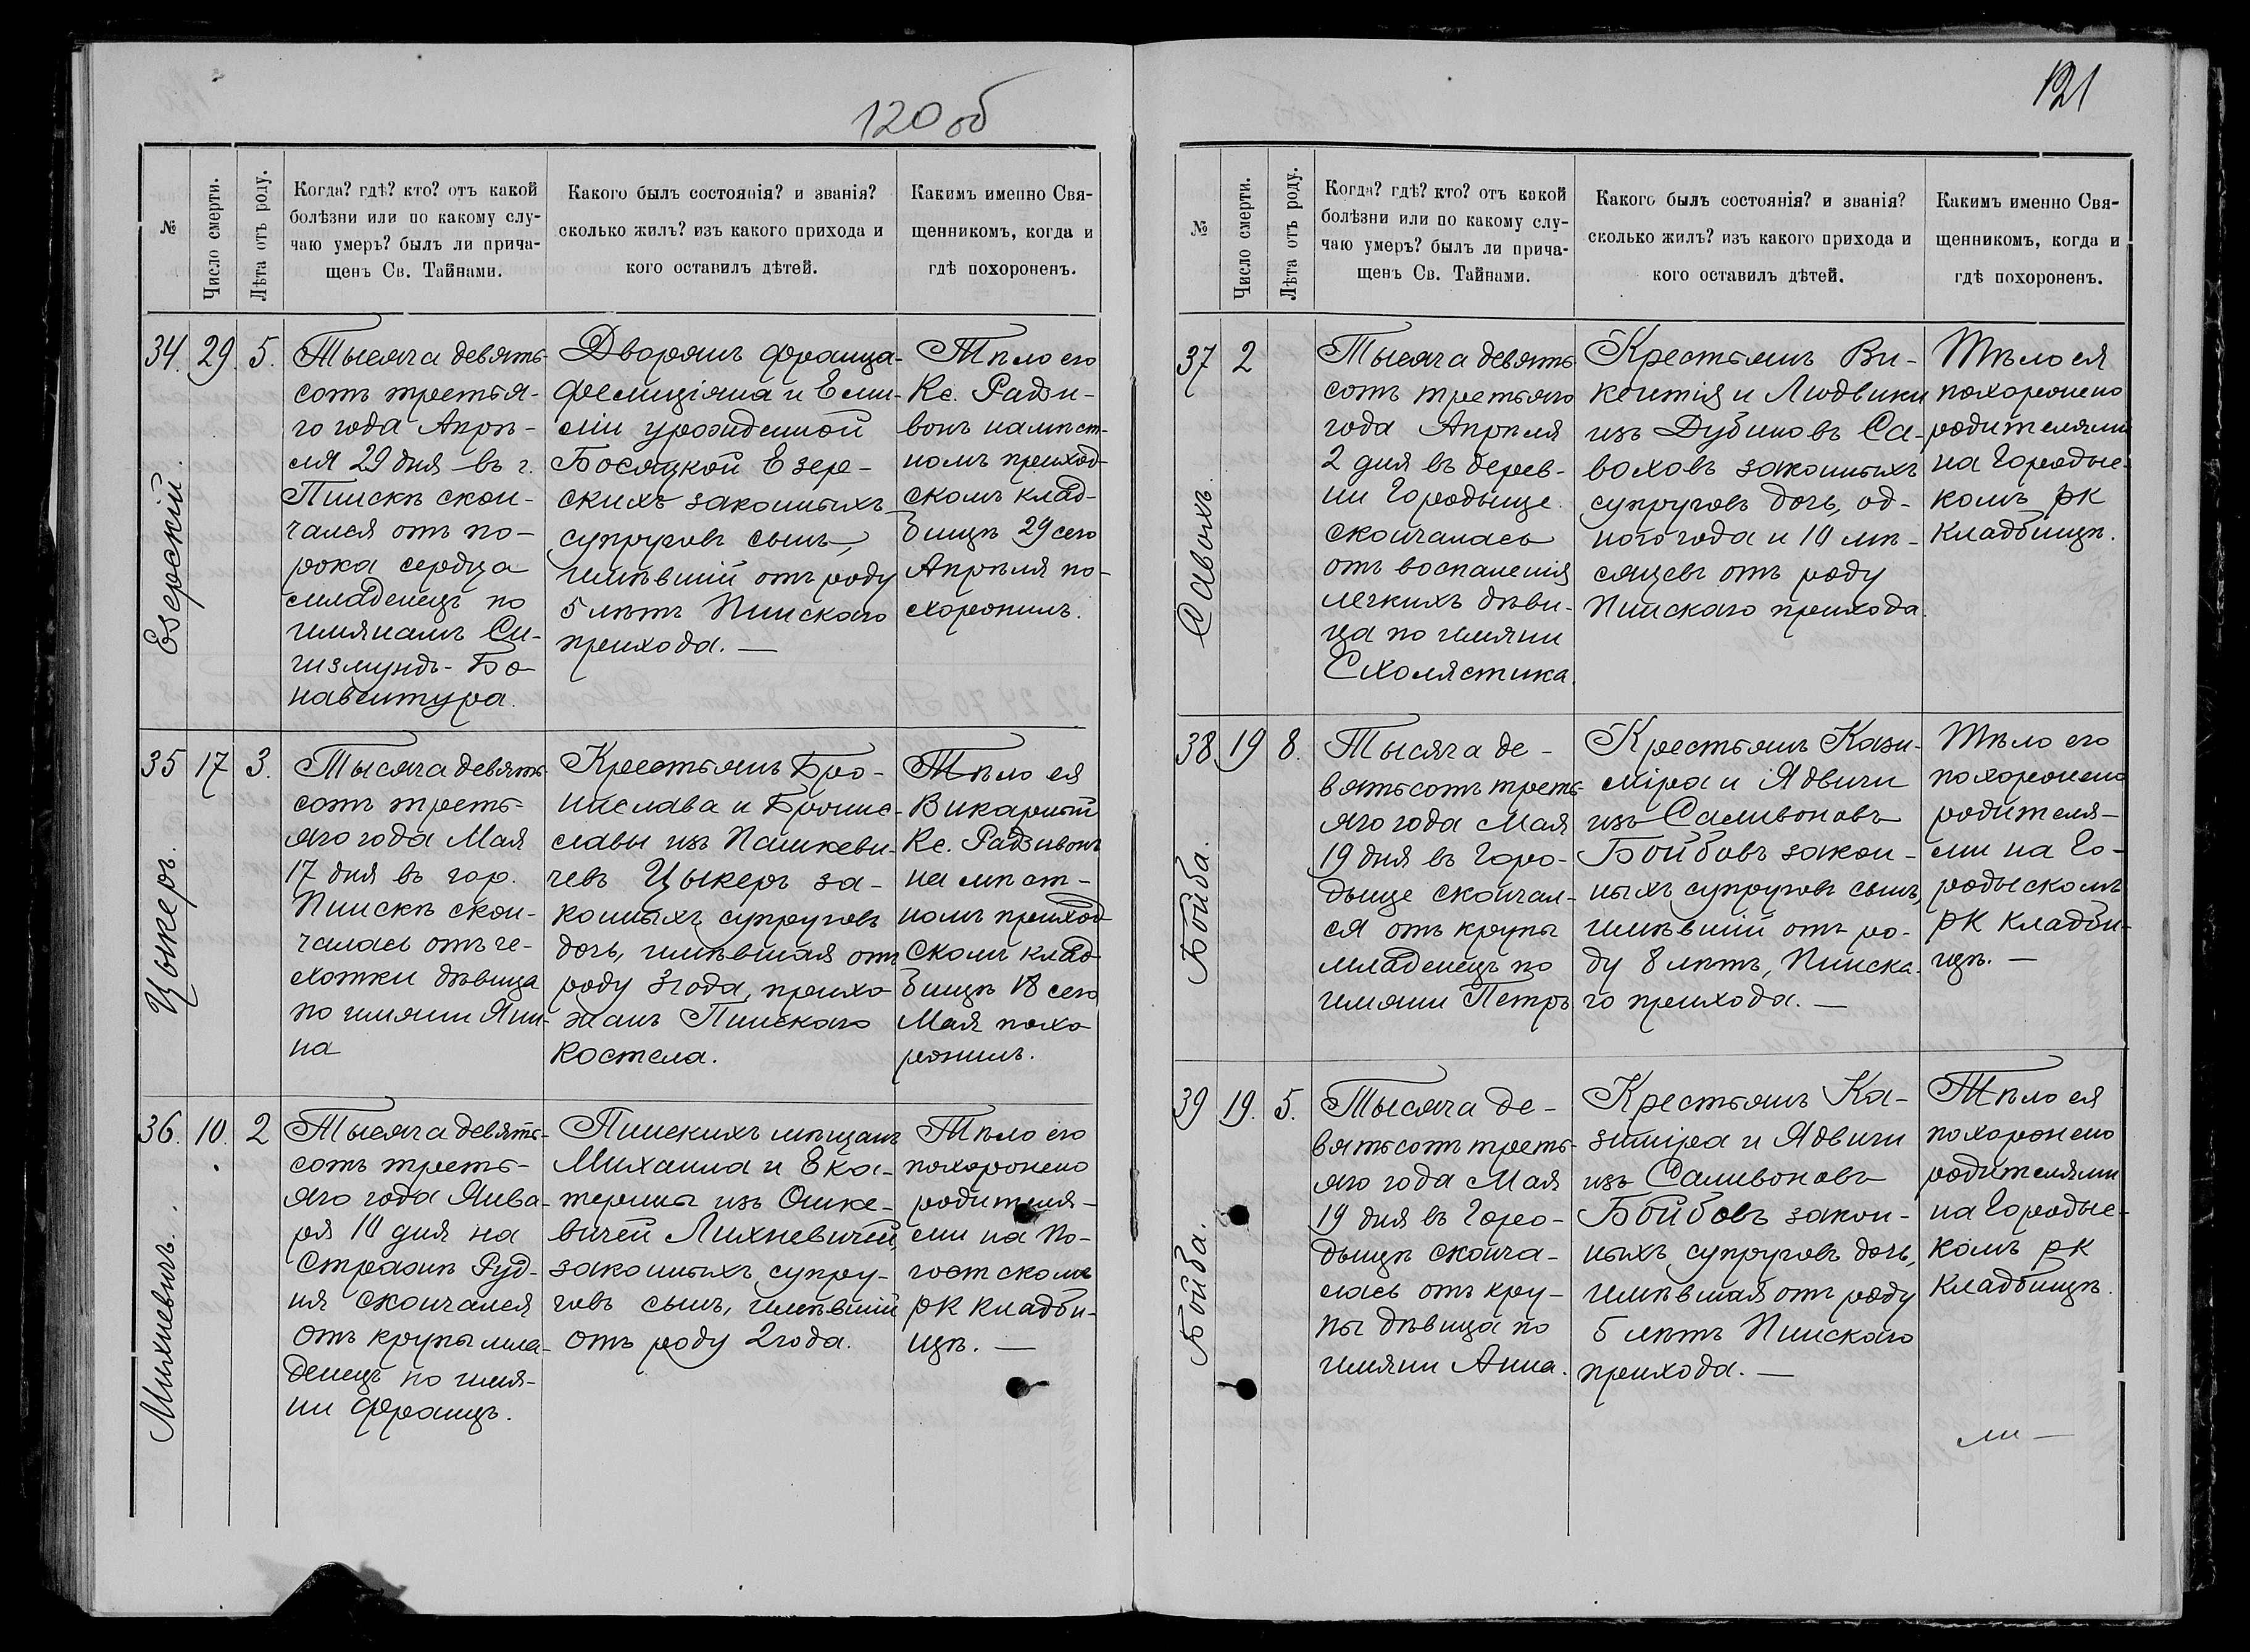 120 об
№
Число смерти.
Лѣта отъ роду.
Когда? гдѣ? кто? отъ какой
болѣзни или по какому слу-
чаю умеръ? былъ ли прича-
щенъ Св. Тайнами.
Какого былъ состоянія? и званія?
сколько жилъ? изъ какого прихода и
кого оставилъ дѣтей.
Какимъ именно Свя-
щенникомъ, когда и
гдѣ похороненъ.
34. 29. 5.
Езерскій.
Тысяча девять-
сотъ третья-
го года Апрѣ-
ля 29 дня въ г.
Пинскѣ скон-
чался отъ по-
рока сердца
младенецъ по
имянамъ Си-
гизмундъ-Бо-
навентура.
Дворянъ Франца-
Фелиціяна и Еми-
ліи урожденной
Босяцкой Езер-
скихъ законныхъ
супруговъ сынъ,
имѣвшій отъ роду
5 лѣтъ Пинскаго
прихода. —
Тѣло его
Кс. Радзи-
вонъ на мѣст-
номъ приход-
скомъ клад-
бищѣ 29 сего
Апрѣля по-
хоронилъ.
35 17 3.
Цыкеръ.
Тысяча девять-
сотъ треть-
яго года Мая
17 дня въ гор.
Пинскѣ скон-
чалась отъ че-
хотки дѣвица
по имяни Яни-
на
Крестьянъ Бро-
нислава и Бронис-
славы изъ Пашкеви-
чевъ Цыкеръ за-
конныхъ супруговъ
дочь, имѣвшая отъ
роду 3 года, прихо
жанъ Пинскаго
костела.
Тѣло ея
Викарный
Кс. Радзивонъ
на мѣст-
номъ приход-
скомъ клад-
бищѣ 18 сего
Мая похо
ронилъ.
36. 10. 2
Михневичъ.
Тысяча девять-
сотъ треть-
яго года Янва-
ря 10 дня на
Стражѣ Руд-
ня скончался
отъ крупы мла-
денецъ по имя-
ни Францъ.
Пинскихъ мѣщанъ
Михаила и Ека-
терины изъ Ошке-
вичей Михневичей
законныхъ супру-
говъ сынъ, имѣвшій
отъ роду 2 года.
Тѣло его
похоронено
родителя-
ми на По-
гостскомъ
рк кладби-
щѣ. —
121
№
Число смерти.
Лѣта отъ роду.
Когда? гдѣ? кто? отъ какой
болѣзни или по какому слу-
чаю умеръ? былъ ли прича-
щенъ Св. Тайнами.
Какого былъ состоянія? и званія?
сколько жилъ? изъ какого прихода и
кого оставилъ дѣтей.
Какимъ именно Свя-
щенникомъ, когда и
гдѣ похороненъ.
37 2
Савохъ.
Тысяча девять
сотъ третьяго
года Апрѣля
2 дня въ дерев-
ни Городыще
скончалась
отъ воспаленія
легкихъ дѣви-
ца по имяни
Схолястика.
Крестьянъ Ви-
кентія и Людвики
изъ Дубиновъ Са-
воховъ законныхъ
супруговъ дочь, од-
ного года и 10 мѣ-
сяцевъ отъ роду
Пинскаго прихода.
Тѣло ея
похоронено
родителями
на Городыс-
комъ рк
кладбищѣ.
38 19 8.
Бойба.
Тысяча де-
вятьсотъ треть-
яго года Мая
19 дня въ Горо-
дыще скончал-
ся отъ крупы
младенецъ по
имяни Петръ
Крестьянъ Кази-
міра и Ядвиги
изъ Саливоновъ
Бойбовъ закон-
ныхъ супруговъ сынъ,
имѣвшій отъ ро-
ду 8 лѣтъ, Пинска-
го прихода. —
Тѣло его
похоронено
родителя-
ми на Го-
родыскомъ
рк кладби-
щѣ. —
39 19. 5.
Бойба.
Тысяча де-
вятьсотъ треть-
яго года Мая
19 дня въ Горо-
дыщѣ сконча-
лась отъ кру-
пы дѣвица по
имяни Анна.
Крестьянъ Ка-
зиміра и Ядвиги
изъ Саливоновъ
Бойбовъ закон-
ныхъ супруговъ дочь,
имѣвшая отъ роду
5 лѣтъ Пинскаго
прихода. —
Тѣло ея
похоронено
родителями
на Городыс-
комъ рк
кладбищѣ.